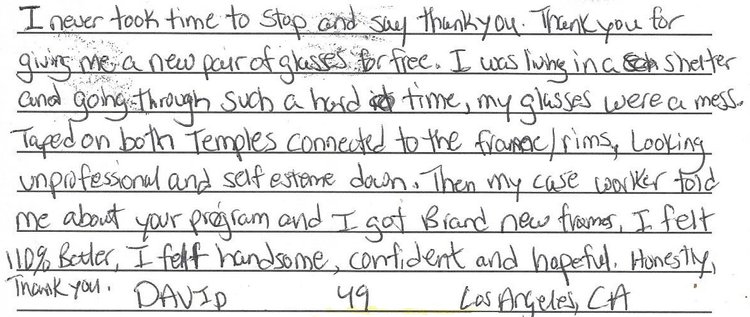 I never took time to stop and say thank you. Thank you for
giving me a new pair of glasses for free. I was living in a shelter
and going through such a hard time, my glasses were a mess.
Taped on both Temples connected to the frame/rims, Looking
unprofessional and self esteme down. Then my case worker told
me about your program and I got Brand new frames, I felt
110% Better, I felt handsome, confident and hopeful. Honestly,
Thank you. DAVID 49 Los Angeles, CA